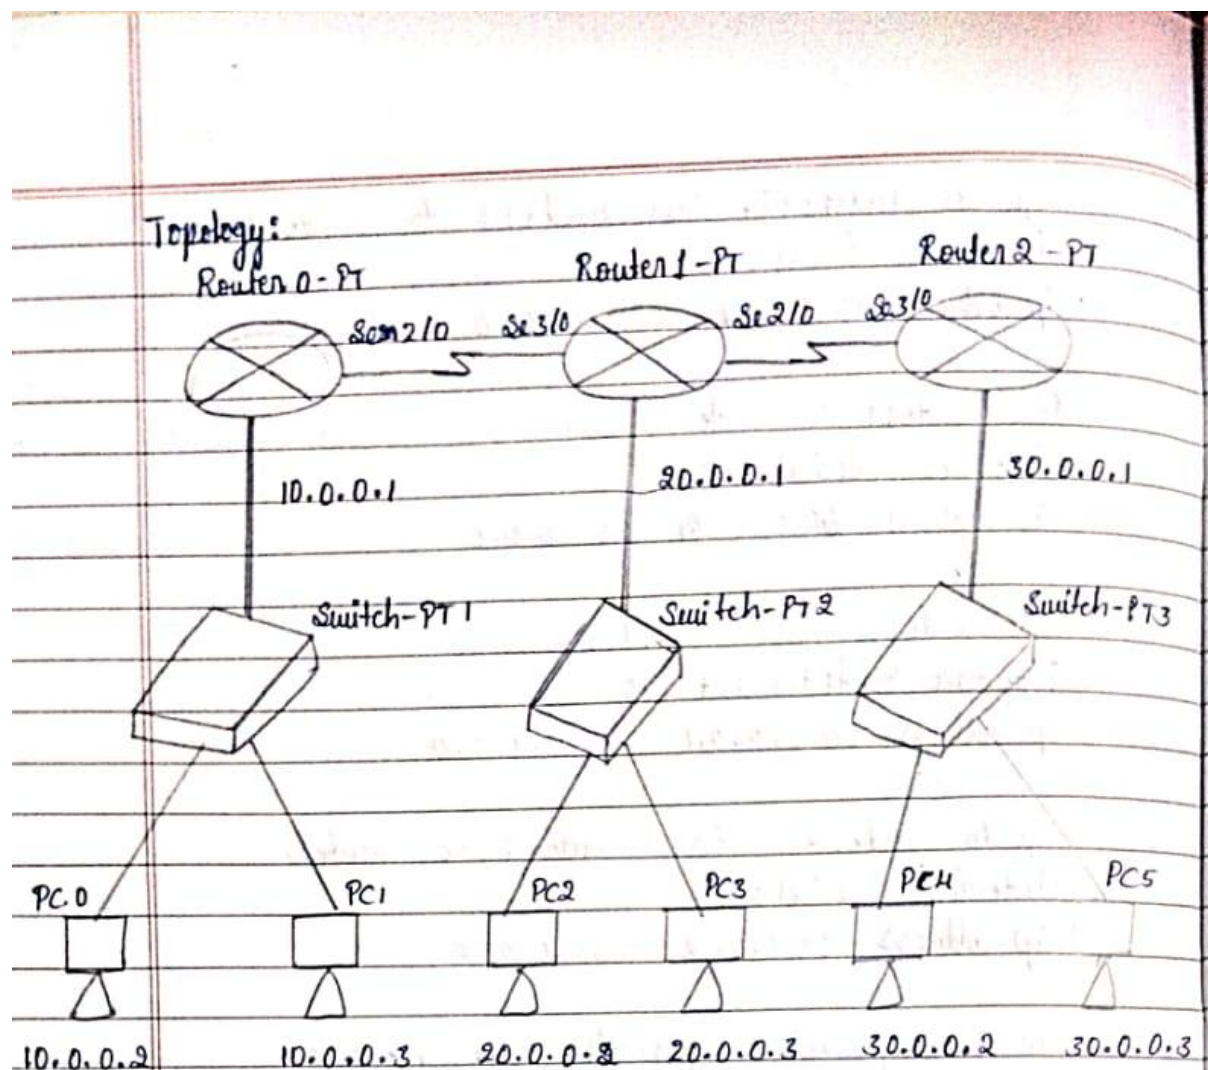 Topology:
Router 0-PT
Router 1-PT
Router 2-PT
Ser 2/0
Se 3/0
Se 2/0
Se 3/0
10.0.0.1
20.0.0.1
30.0.0.1
Switch-PT 1
Switch-PT 2
Switch-PT3
PC0
PC1
PC2
PC3
PC4
PC5
10.0.0.2
10.0.0.3
20.0.0.2
20.0.0.3
30.0.0.2
30.0.0.3